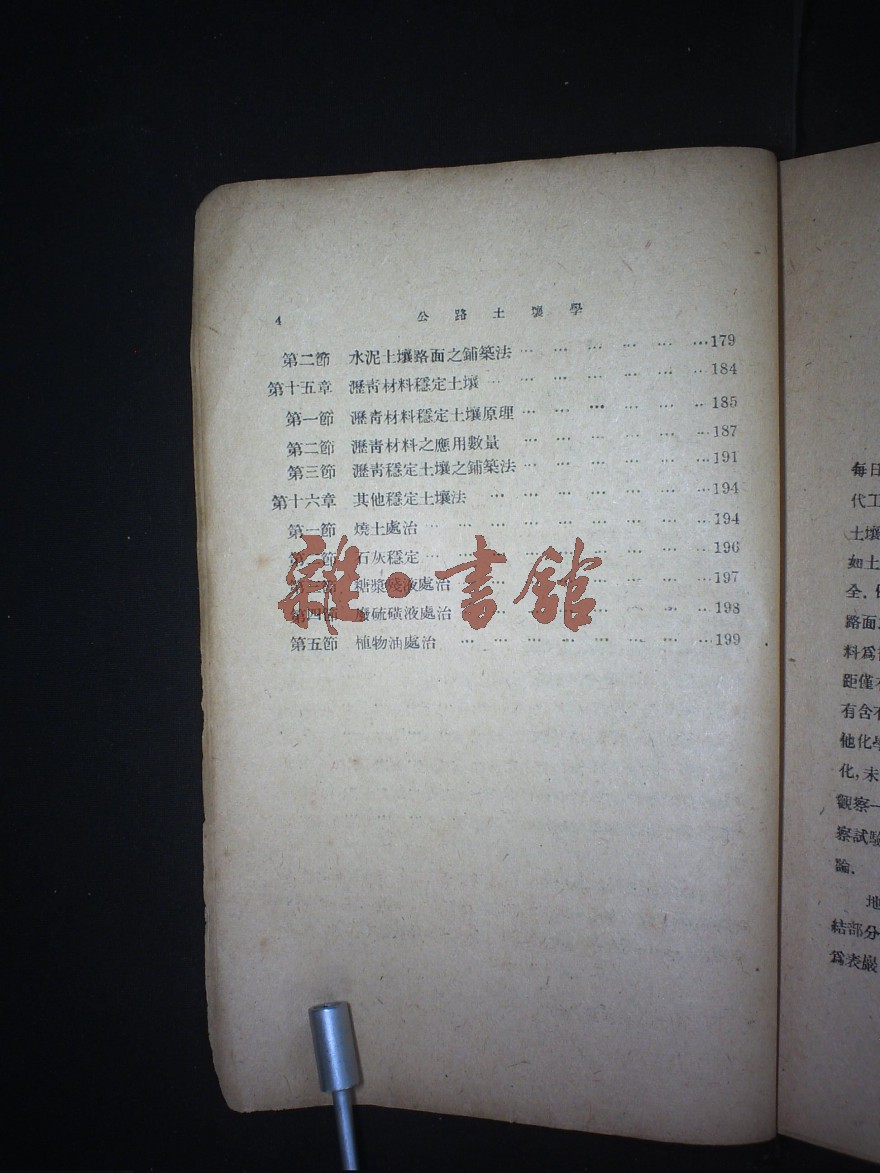 4 公路土壤學
第二節 水泥土壤路面之鋪築法 … … … … … … …179
第十五章 瀝靑材料穩定土壤 … … … … … … … 184
第一節 瀝靑材料穩定土壤原理 … … … … … … 185
第二節 瀝靑材料之應用數量 … … … … … … …187
第三節 瀝靑穩定土壤之鋪築法 … … … … … … …191
第十六章 其他穩定土壤法 … … … … … … … …194
第一節 燒土處治 … … … … … … … … …194
節 石灰穩定 … … … … … … … … …196
節 糖漿殘液處治 … … … … … … … …197
第四節 廢硫磺液處治 … … … … … … … …198
第五節 植物油處治 … … … … … … … …199
雜·書館
每日
代工
土壤
如土
全,
路面
料爲
距僅
有含
他化學
化,未
觀察一
察試驗
論.
地
結部分
爲表巖